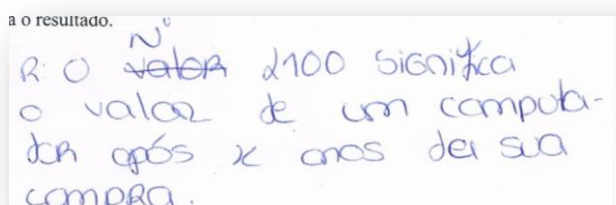 a o resultado.
Nº
R: O valor 2100 significa
o valor de um computa-
dor após x anos da sua
compra.